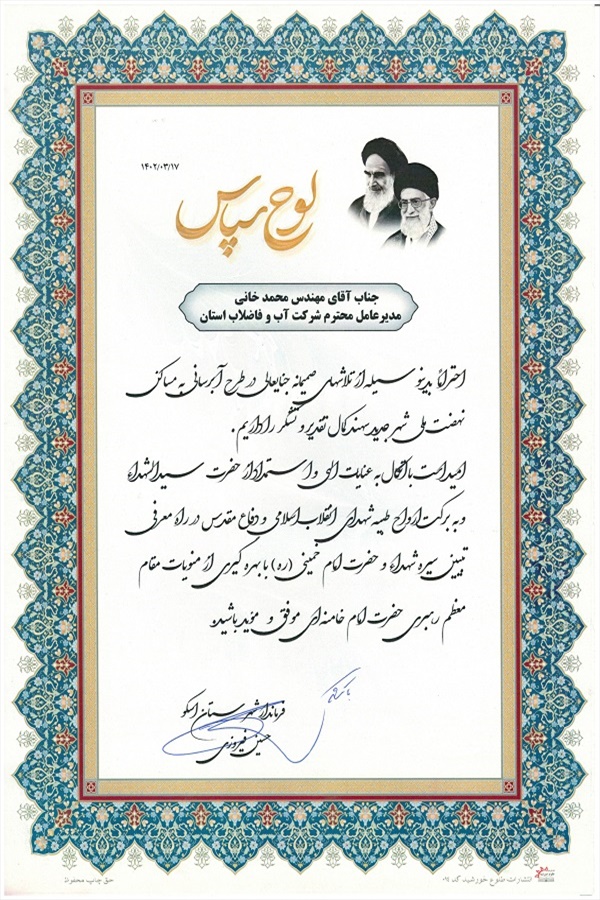 ۱۴۰۲/۰۳/۱۷
لوح سپاس
جناب آقای مهندس محمد خانی
مدیرعامل محترم شرکت آب و فاضلاب استان
احتراماً بدینوسیله از تلاشهای صمیمانه جنابعالی در طرح آبرسانی به مساکن
نهضت ملی شهر جدید سهند کمال تقدیر و تشکر را داریم.
امید است با اتکال به عنایات الهی و استمداد از حضرت سیدالشهداء
و به برکت ارواح طیبه شهدای انقلاب اسلامی و دفاع مقدس در راه معرفی
تبیین سیره شهداء و حضرت امام خمینی (ره) با بهره گیری از منویات مقام
معظم رهبری حضرت امام خامنه ای موفق و مؤید باشید.
با تشکر
فرماندار شهرستان اسکو
حسین فیروزی
انتشارات طلوع خورشید کد ۰۹۴
حق چاپ محفوظ